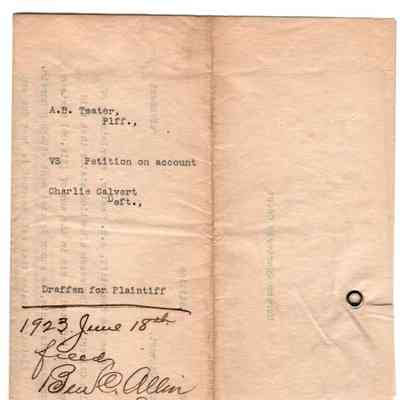 A.B. Teater,
Plff.,
VS Petition on account
Charlie Calvert
Deft.,
Draffen for Plaintiff
1923 June 18th
filed
Ben C. Allin